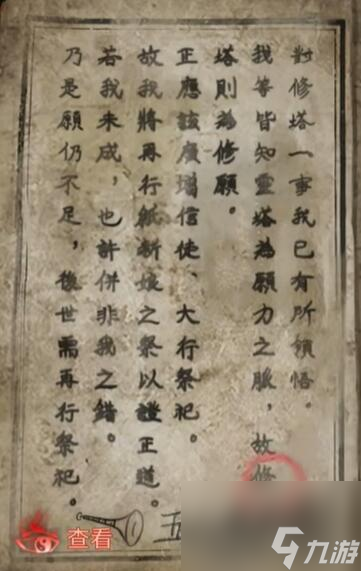 對修塔一事我已有所領悟。
我等皆知靈塔為願力之脈，故修
塔則為修願。
正應該廣增信徒、大行祭祀。
故我將再行紙新娘之祭以證正道。
若我未成，也許併非我之錯。
乃是願仍不足，後世需再行祭祀。
查看
五
九游